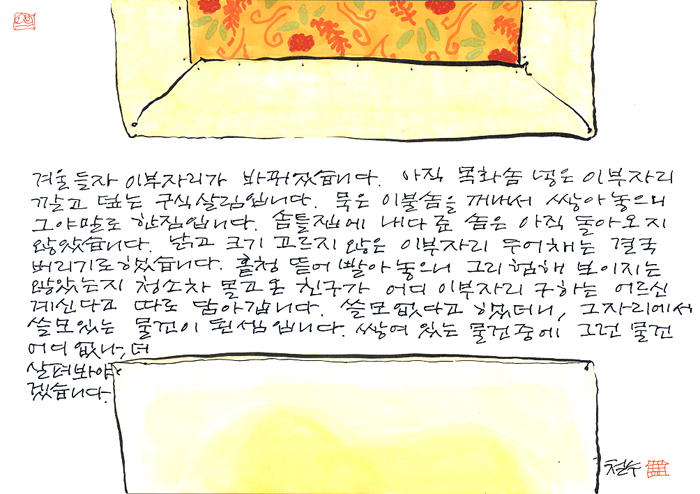 겨울 들자 이부자리가 바뀌었습니다. 아직 목화솜 넣은 이부자리
깔고 덮는 구식살림입니다. 묵은 이불솜을 꺼내서 쌓아놓으니
그야말로 한짐입니다. 솜틀집에 내다 준 솜은 아직 돌아오지
않았습니다. 낡고 크기 고르지 않은 이부자리 두어채는 결국
버리기로 했습니다. 홑청 뜯어 빨아놓으니 그리 험해 보이지는
않았는지 청소차 몰고 온 친구가 어디 이부자리 구하는 어르신
계신다고 따로 담아갑니다. 쓸모없다고 했더니, 그자리에서
쓸모있는 물건이 된 셈입니다. 쌓여 있는 물건중에 그런 물건
어디 없나, 더
살펴봐야
겠습니다.
철수